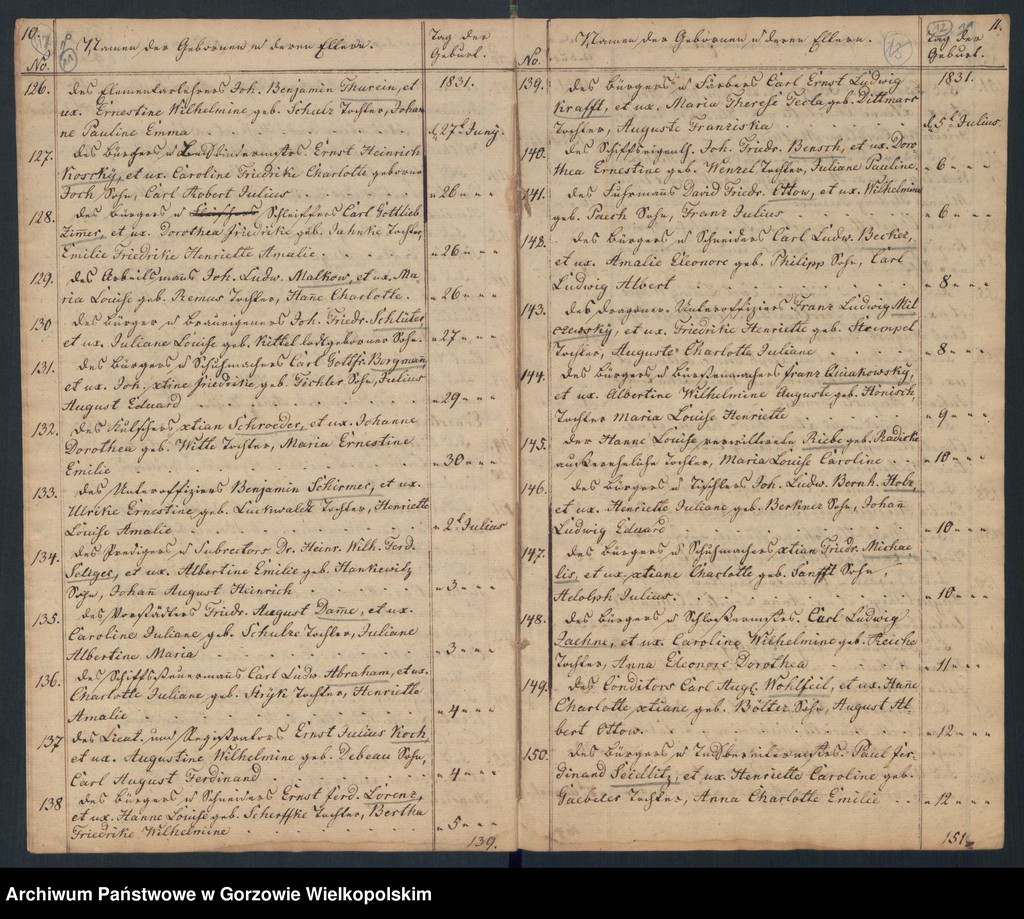 10.
No.
Namen der Gebornen u deren Eltern.
Tag der
Geburt.
126. des Elementarlehrers Joh. Benjamin Thurein, et
1831.
ux. Ernestine Wilhelmine geb. Schulz Tochter, Johan
ne Pauline Emma
d. 27t Juny.
127. des Bürgers u Ernst Heinrich
Kossky, et ux. Caroline Friedrike Charlotte geborne
Joch Sohn, Carl Robert Julius
" 26 " " "
128. des Bürgers u Schleiffers Carl Gottlieb
Zimer, et ux. Dorothea Friedrike geb. Jahnke Tochter,
Emilie Friedrike Henriette Amalie.
" 26 " " "
129. des Arbeitsmanns Joh. Ludw. Malkow, et ux. Ma
ria Louise geb. Remus Tochter, Hane Charlotte.
" 26 " " "
130 des Bürger u Braueigeners Joh. Friedr. Schlüter,
et ux. Juliane Louise geb. Kittel todtgeborner Sohn.
" 27 " " "
131. des Bürgers u Schuhmachers Carl Gottfr. Borgmann,
et ux. Joh. xtine Friedrike geb. Tichler Sohn, Julius
August Eduard
" 29 " " "
132. des Kutschers xtian Schroeder, et ux. Johanne
Dorothea geb. Witte Tochter, Maria Ernestine
Emilie
" 30 " " "
133. des Unteroffiziers Benjamin Schirmer, et ux.
Ulrike Ernestine geb. Luckwaldt Tochter, Henriette
Louise Amalie
" 2t Julius
134. des Predigers u Subrectors Dr. Heinr. Wilh. Ferd.
Seliger, et ux. Albertine Emilie geb. Hankewitz
Sohn, Johann August Heinrich
" 3 " " "
135. des Vorstädters Friedr. August Dame, et ux.
Caroline Juliane geb. Schulze Tochter, Juliane
Albertine Maria
" 3 " " "
136. des Schiffssteuermanns Carl Ludw. Abraham, et ux.
Charlotte Juliane geb. Stryk Tochter, Henriette
Amalie
" 4 " " "
137 des Lieut. und Registrators Ernst Julius Koch,
et ux. Augustine Wilhelmine geb. Debeau Sohn,
Carl August Ferdinand
" 4 " " "
138 des Bürgers u Schneiders Ernst Ferd. Lorenz,
et ux. Hanne Louise geb. Scherffke Tochter, Bertha
Friedrike Wilhelmine
" 5 " " "
139.
11.
No.
Namen der Gebornen u deren Eltern.
Tag der
Geburt.
139. des Bürgers u Färbers Carl Ernst Ludwig
1831.
Krafft, et ux. Maria Therese Tecla geb. Dittmars
Tochter, Auguste Franziska
d. 5t Julius.
140. des Schiffseigenth. Joh. Friedr. Bensch, et ux. Doro
thea Ernestine geb. Wenzel Tochter, Juliane Pauline.
" 6 " " "
141. des Fuhrmanns David Friedr. Ottow, et ux. Wilhelmine
geb. Paech Sohn, Franz Julius
" 6 " " "
142. des Bürgers u Schneiders Carl Ludw. Becker,
et ux. Amalie Eleonore geb. Philipp Sohn, Carl
Ludwig Albert
" 8 " " "
143. des Dragoner-Unteroffiziers Franz Ludwig Mil
czewsky, et ux. Friedrike Henriette geb. Stoempel
Tochter, Auguste Charlotte Juliane
" 8 " " "
144. des Bürgers u Bürstenmachers Franz Quiakowsky,
et ux. Albertine Wilhelmine Auguste geb. Hönisch
Tochter Maria Louise Henriette
" 9 " " "
145. der Hanne Louise verwittwete Riebe geb. Radicke
außereheliche Tochter, Maria Louise Caroline
" 10 " " "
146. des Bürgers u Tischlers Joh. Ludw. Bernh. Holz,
et ux. Henriette Juliane geb. Berkner Sohn, Johan
Ludwig Eduard
" 10 " " "
147. des Bürgers u Schuhmachers xtian Friedr. Michae
lis, et ux. xtiane Charlotte geb. Sanfft Sohn,
Adolph Julius.
" 10 " " "
148. des Bürgers u Schloßermstrs. Carl Ludwig
Jaehne, et ux. Caroline Wilhelmine geb. Reiche
Tochter, Anna Eleonore Dorothea
" 11 " " "
149. des Conditors Carl Aug. Wohlfeil, et ux. Hane
Charlotte xtiane geb. Bölter Sohn, August Al-
bert Ottow.
" 12 " " "
150. des Bürgers u Paul Fer-
dinand Seidlitz, et ux. Henriette Caroline geb.
Gaebeler Tochter, Anna Charlotte Emilie
" 12 " " "
151.
Archiwum Państwowe w Gorzowie Wielkopolskim